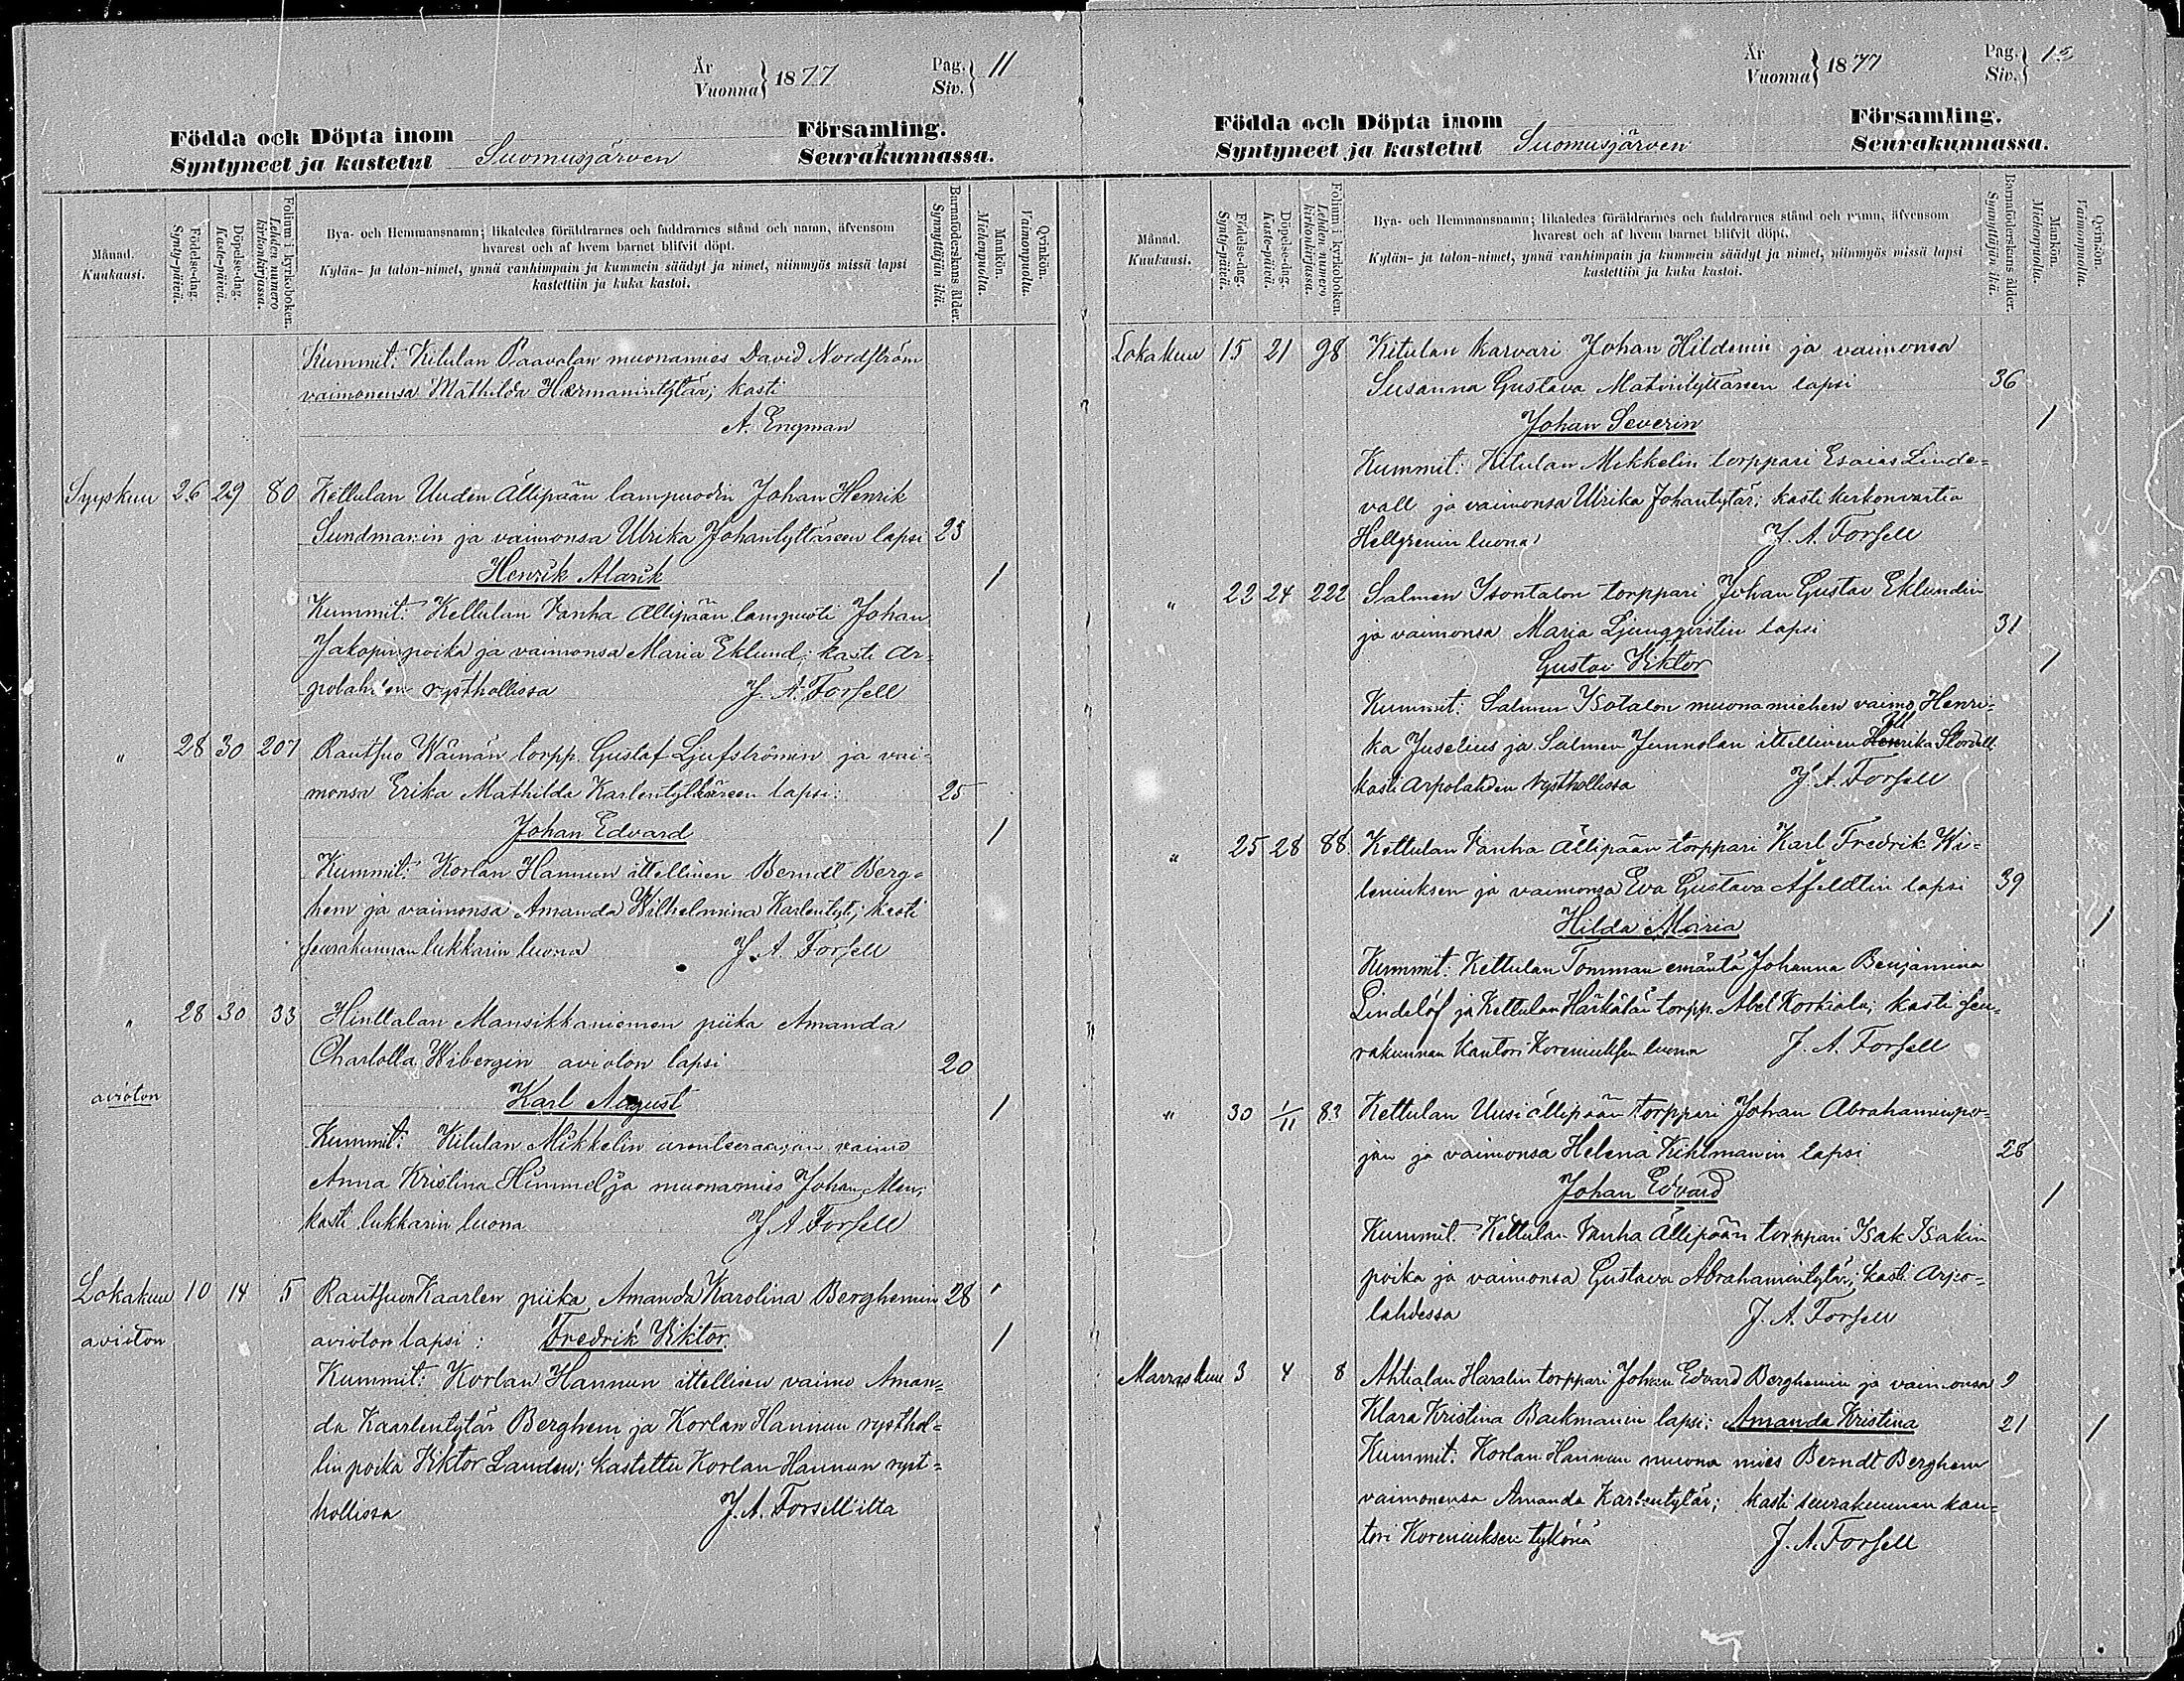 År
Vuonna } 1877
Pag.
Siv. } 11
Födda och Döpta inom
Församling.
Syntyneet ja kastetut Suomusjärven Seurakunnassa.
Månad.
Kuukausi.
Födelse-dag.
Synty-päivä.
Döpelse-dag.
Kaste-päivä.
Folium i kyrkoboken.
Lehden numero
kirkonkirjassa.
Bya- och Hemmansnamn; likaledes föräldrarnes och faddrarnes stånd och namn, äfvensom
hvarest och af hvem barnet blifvit döpt.
Kylän- ja talon-nimet, ynnä vanhimpain ja kummein säädyt ja nimet, niinmyös missä lapsi
kastettiin ja kuka kastoi.
Barnaföderskans ålder.
Synnyttäjän ikä.
Mankön.
Miehenpuolta.
Qvinkön.
Vaimonpuolta.
Kummit: Kitulan Paavolan muonamies David Nordström
vaimonensa Mathilda Hermanintytär; kasti
A. Engman
Syyskuu 26 29 80 Kettulan Uuden Ällipään lampuodin Johan Henrik
Sundmanin ja vaimonsa Ulrika Johantyttären lapsi 23
Henrik Alarik 1
Kummit: Kettulan Vanha Ällipään lampuoti Johan
Jakopinpoika ja vaimonsa Maria Eklund; kasti Ar-
polahden rysthollissa J. A. Forsell
" 28 30 207 Rautsuo Wäinän torpp. Gustaf Ljufströmin ja vai-
monsa Erika Mathilda Karlentyttären lapsi: 25
Johan Edvard 1
Kummit: Korlan Hannun ittellinen Berndt Berg-
hem ja vaimonsa Amanda Wilhelmina Karlentyt; kasti
seurakunnan lukkarin luona J. A. Forsell
" 28 30 33 Hinttalan Mansikkaniemen piika Amanda
Charlotta Wibergin avioton lapsi 20
avioton Karl August 1
Kummit: Kitulan Mikkelin vaimo
Anna Kristina Himmel ja muonamies Johan Alen;
kasti lukkarin luona J A Forsell
Lokakuu 10 14 5 Rautsuon Kaarlen piika Amanda Karolina Berghemin 28
avioton avioton lapsi: Fredrik Viktor 1
Kummit: Korlan Hannun ittellisen vaimo Aman-
da Kaarlentytär Berghem ja Korlan Hannun rysthol-
lin poika Viktor Landen; kastettu Korlan Hannun ryst-
hollissa J. A. Forsell'ilta
År
Vuonna } 1877
Pag.
Siv. } 15
Födda och Döpta inom
Församling.
Syntyneet ja kastetut Suomusjärven Seurakunnassa.
Månad.
Kuukausi.
Födelse-dag.
Synty-päivä.
Döpelse-dag.
Kaste-päivä.
Folium i kyrkoboken.
Lehden numero
kirkonkirjassa.
Bya- och Hemmansnamn; likaledes föräldrarnes och faddrarnes stånd och namn, äfvensom
hvarest och af hvem barnet blifvit döpt.
Kylän- ja talon-nimet, ynnä vanhimpain ja kummein säädyt ja nimet, niinmyös missä lapsi
kastettiin ja kuka kastoi.
Barnaföderskans ålder.
Synnyttäjän ikä.
Mankön.
Miehenpuolta.
Qvinkön.
Vaimonpuolta.
Lokakuu 15 21 98 Kitulan karvari Johan Hildenin ja vaimonsa
Susanna Gustava Matintyttären lapsi 36
Johan Severin 1
Kummit: Kitulan Mikkelin torppari Esaias Linde-
vall ja vaimonsa Ulrika Johantytär; kasti kirkonvartia
Hellgrenin luona J. A. Forsell
" 22 24 222 Salmen Isontalon torppari Johan Gustav Eklundin
ja vaimonsa Maria Ljungqvistin lapsi 31
Gustav Viktor 1
Kummit: Salmen Isotalon muonamiehen vaimo Henri-
ka Juselius ja Salmen Junnolan ittellinen
kasti Arpolahden rysthollissa J. A. Forsell
" 25 28 88. Kettulan Vanha Ällipään torppari Karl Fredrik Wi-
leniuksen ja vaimonsa Eva Gustava Åfeldtin lapsi 39
Hilda Maria 1
Kummit: Kettulan Tomman emäntä Johanna Benjamina
Lindelöf ja Kettulan Härkälän torpp. Abel Korkiala; kasti seu-
rakunnan kantori Koreniuksen luona J. A. Forsell
" 30 1/11 83 Kettulan Uusi Ällipään torppari Johan Abrahaminpo-
jan ja vaimonsa Helena Kihlmanin lapsi 28
Johan Edvard 1
Kummit: Kettulan Vanha Ällipään torppari Isak Isakin
poika ja vaimonsa Gustava Abrahamintytär; kasti Arpo-
lahdessa J. A. Forsell
Marraskuu 3 4 8 Ahtialan Haralin torppari Johan Edvard Berghemin ja vaimonsa
Klara Kristina Backmanin lapsi: Amanda Kristina 21 1
Kummit: Korlan Hannun muona mies Berndt Berghem
vaimonensa Amanda Karlentytär; kasti seurakunnan kan-
tori Koreniuksen tykönä J. A. Forsell